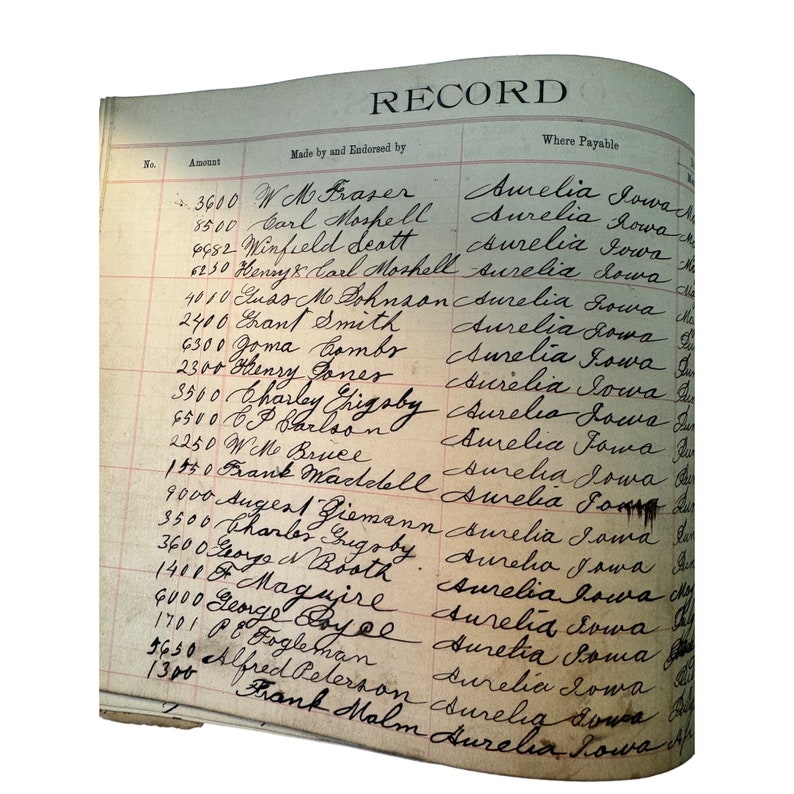 RECORD
No. Amount Made by and Endorsed by Where Payable
3600 W M Fraser Aurelia Iowa
8500 Carl Moshell Aurelia Iowa
6682 Winfield Scott Aurelia Iowa
6250 Henry & Carl Moshell Aurelia Iowa
4010 Guss M Johnson Aurelia Iowa
2400 Grant Smith Aurelia Iowa
6300 Combs Aurelia Iowa
2300 Henry Jones Aurelia Iowa
3500 Charley Grigsby Aurelia Iowa
6500 C P Carlson Aurelia Iowa
2250 W M Bruce Aurelia Iowa
1550 Frank Waddell Aurelia Iowa
9000 August Ziemann Aurelia Iowa
3500 Charles Grigsby Aurelia Iowa
3600 George N Booth Aurelia Iowa
1401 F Maguire Aurelia Iowa
6000 George Aurelia Iowa
1701 P E Fogleman Aurelia Iowa
5650 Alfred Peterson Aurelia Iowa
1300 Frank Malm Aurelia Iowa